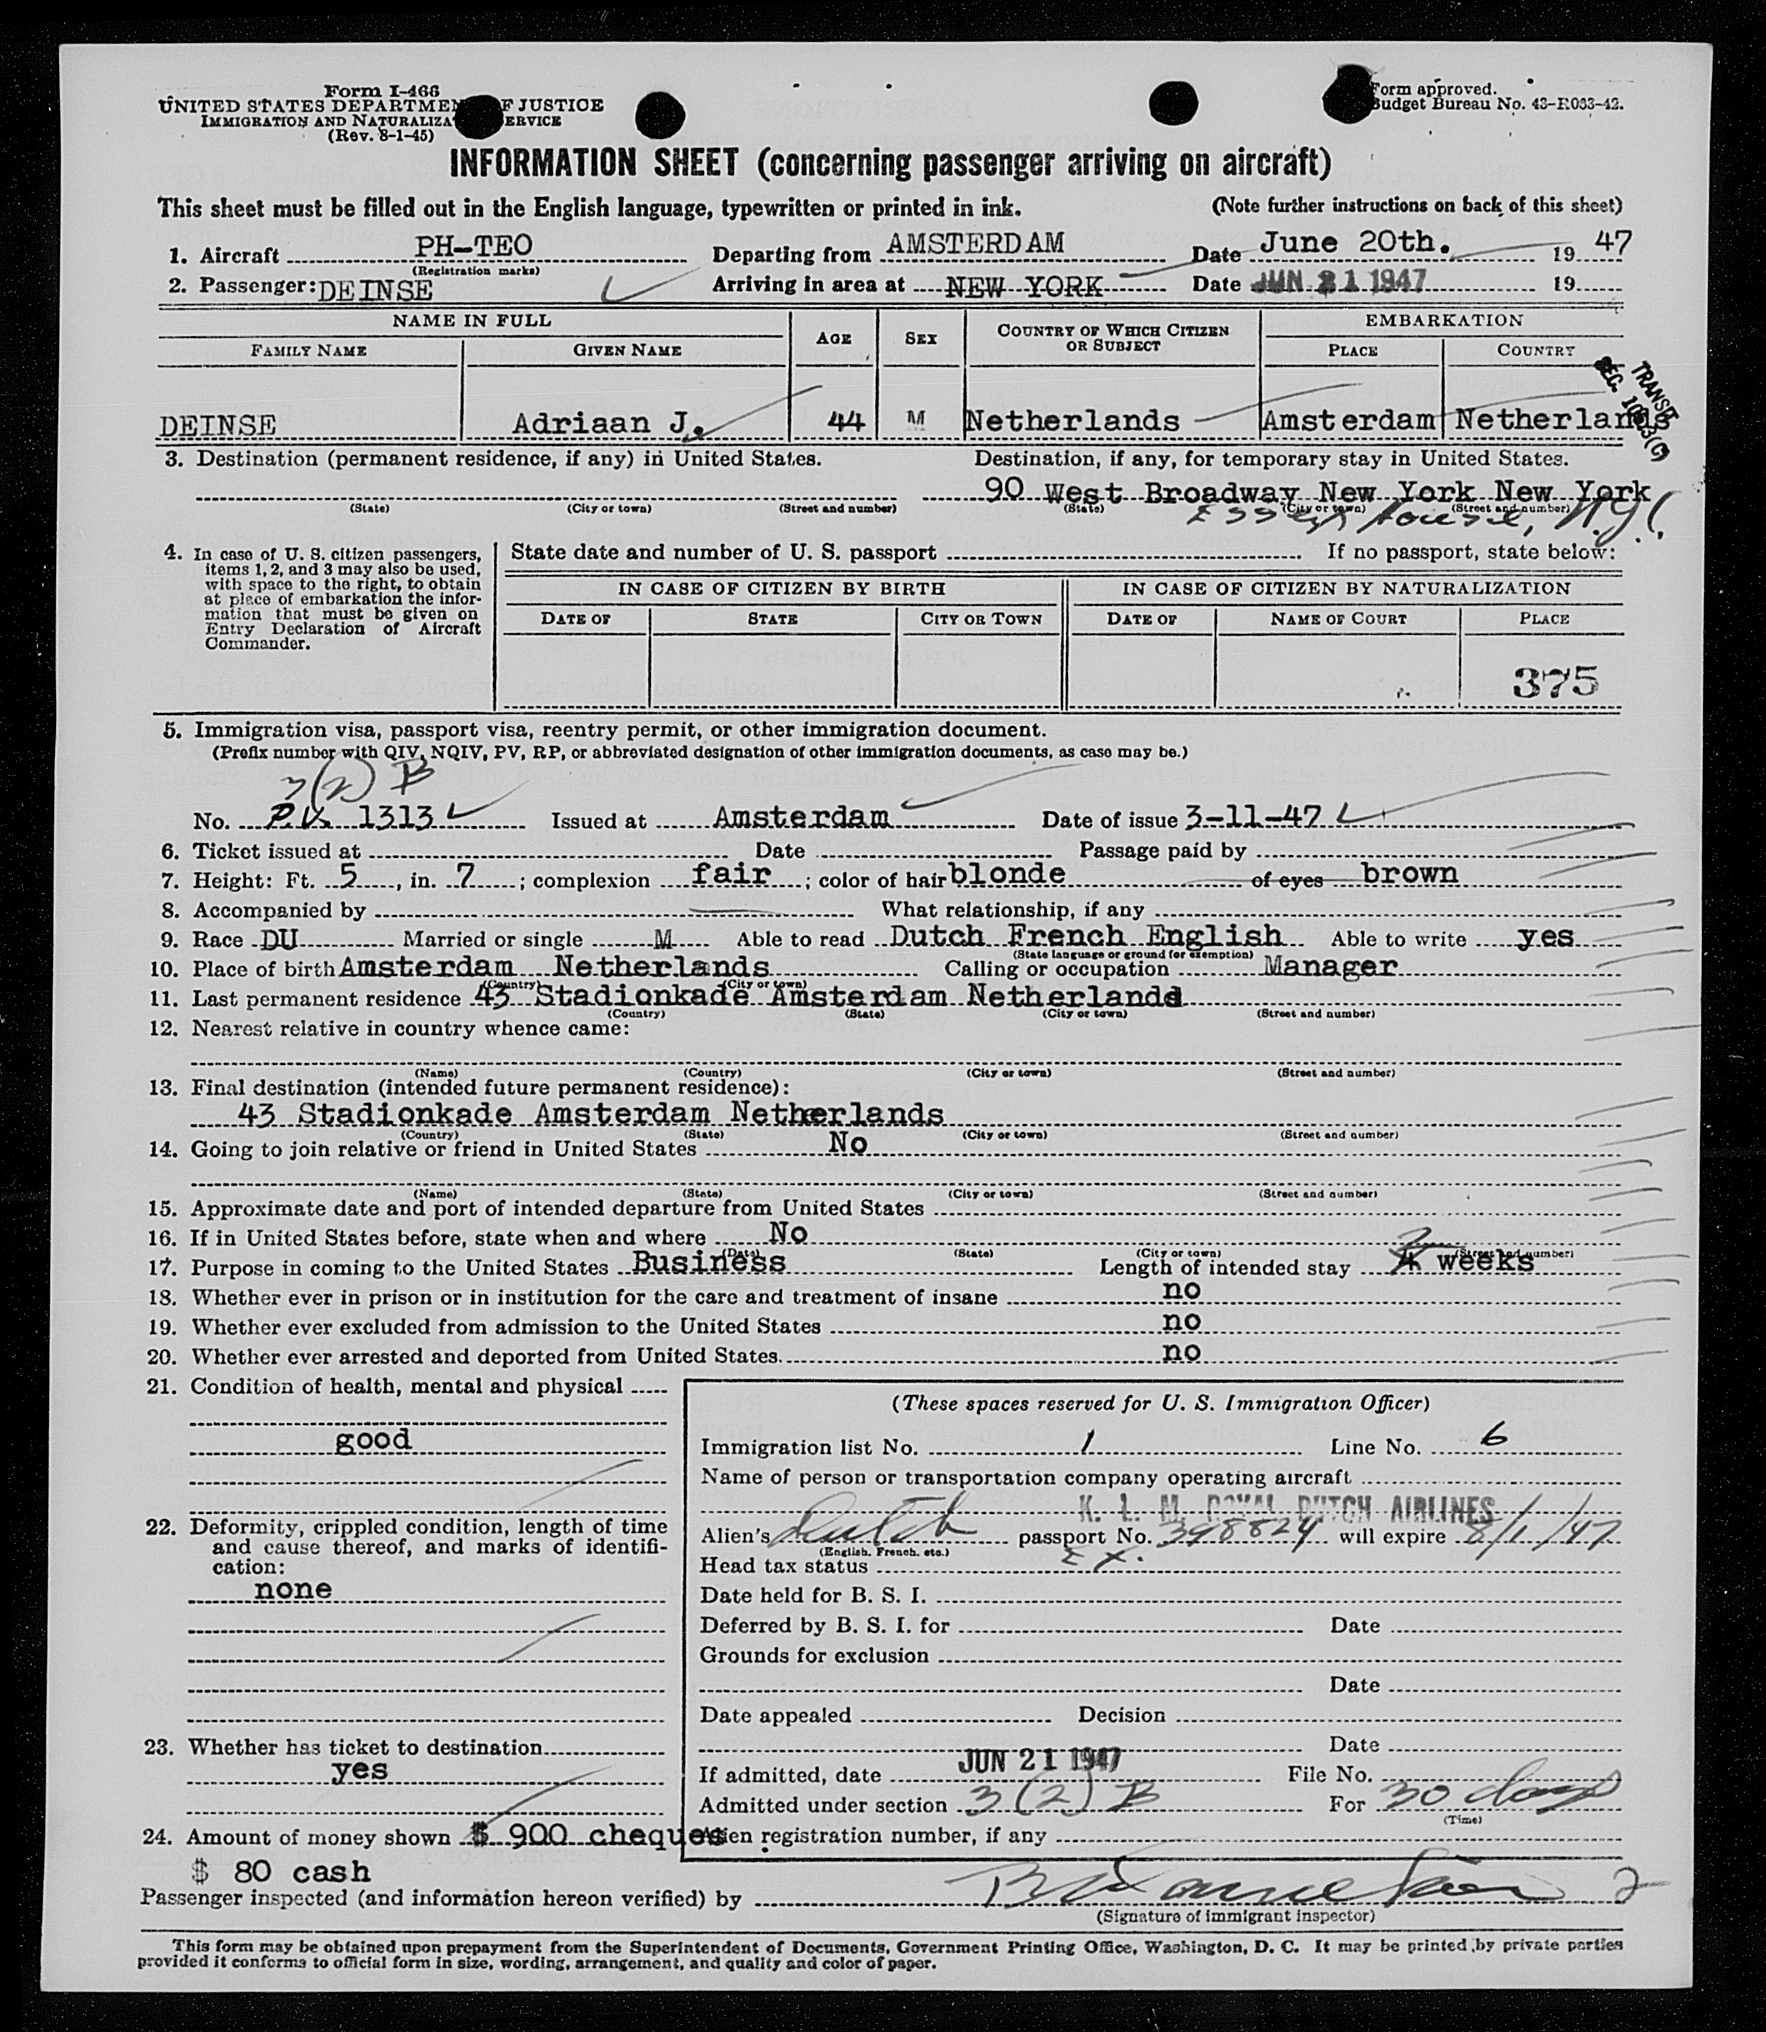 Form I-466
UNITED STATES DEPARTMENT OF JUSTICE
IMMIGRATION AND NATURALIZATION SERVICE
(Rev. 8-1-45)
Form approved.
Budget Bureau No. 43-R033-42.
INFORMATION SHEET (concerning passenger arriving on aircraft)
This sheet must be filled out in the English language, typewritten or printed in ink. (Note further instructions on back of this sheet)
1. Aircraft PH-TEO Departing from AMSTERDAM Date June 20th. 19 47
(Registration marks)
2. Passenger: DEINSE Arriving in area at NEW YORK Date JUN 21 1947 19
NAME IN FULL AGE SEX COUNTRY OF WHICH CITIZEN OR SUBJECT EMBARKATION
FAMILY NAME GIVEN NAME PLACE COUNTRY
TRANSIT
SEC.
DEINSE Adriaan J. 44 M Netherlands Amsterdam Netherlands
3. Destination (permanent residence, if any) in United States. Destination, if any, for temporary stay in United States.
90 West Broadway New York New York
(State) (City or town) (Street and number) (State) (City or town) (Street and number)
Essex House, N.Y.C.
4. In case of U. S. citizen passengers, items 1, 2, and 3 may also be used, with space to the right, to obtain at place of embarkation the information that must be given on Entry Declaration of Aircraft Commander.
State date and number of U. S. passport If no passport, state below:
IN CASE OF CITIZEN BY BIRTH IN CASE OF CITIZEN BY NATURALIZATION
DATE OF STATE CITY OR TOWN DATE OF NAME OF COURT PLACE
375
5. Immigration visa, passport visa, reentry permit, or other immigration document.
(Prefix number with QIV, NQIV, PV, RP, or abbreviated designation of other immigration documents, as case may be.)
3(2) B
No. P.V. 1313 Issued at Amsterdam Date of issue 3-11-47
6. Ticket issued at Date Passage paid by
7. Height: Ft. 5, in. 7; complexion fair; color of hair blonde of eyes brown
8. Accompanied by What relationship, if any
9. Race DU Married or single M Able to read Dutch French English Able to write yes
(State language or ground for exemption)
10. Place of birth Amsterdam Netherlands Calling or occupation Manager
(Country) (City or town)
11. Last permanent residence 43 Stadionkade Amsterdam Netherlands
(Country) (State) (City or town) (Street and number)
12. Nearest relative in country whence came:
(Name) (Country) (City or town) (Street and number)
13. Final destination (intended future permanent residence):
43 Stadionkade Amsterdam Netherlands
(Country) (State) (City or town) (Street and number)
14. Going to join relative or friend in United States No
(Name) (State) (City or town) (Street and number)
15. Approximate date and port of intended departure from United States
16. If in United States before, state when and where No
(Date) (State) (City or town) (Street and number)
17. Purpose in coming to the United States Business Length of intended stay 4 weeks
18. Whether ever in prison or in institution for the care and treatment of insane no
19. Whether ever excluded from admission to the United States no
20. Whether ever arrested and deported from United States. no
21. Condition of health, mental and physical
good
22. Deformity, crippled condition, length of time and cause thereof, and marks of identification:
none
23. Whether has ticket to destination
yes
24. Amount of money shown $ 900 cheques
$ 80 cash
(These spaces reserved for U. S. Immigration Officer)
Immigration list No. 1 Line No. 6
Name of person or transportation company operating aircraft
K. L. M. ROYAL DUTCH AIRLINES
Alien's Dutch passport No. 398824 will expire 8/1/47
(English, French, etc.)
Head tax status Ex.
Date held for B. S. I.
Deferred by B. S. I. for Date
Grounds for exclusion
Date
Date appealed Decision
Date
If admitted, date JUN 21 1947 File No.
Admitted under section 3(2) B For 30 days
(Time)
Alien registration number, if any
Passenger inspected (and information hereon verified) by
2
(Signature of immigrant inspector)
This form may be obtained upon prepayment from the Superintendent of Documents, Government Printing Office, Washington, D. C. It may be printed by private parties
provided it conforms to official form in size, wording, arrangement, and quality and color of paper.